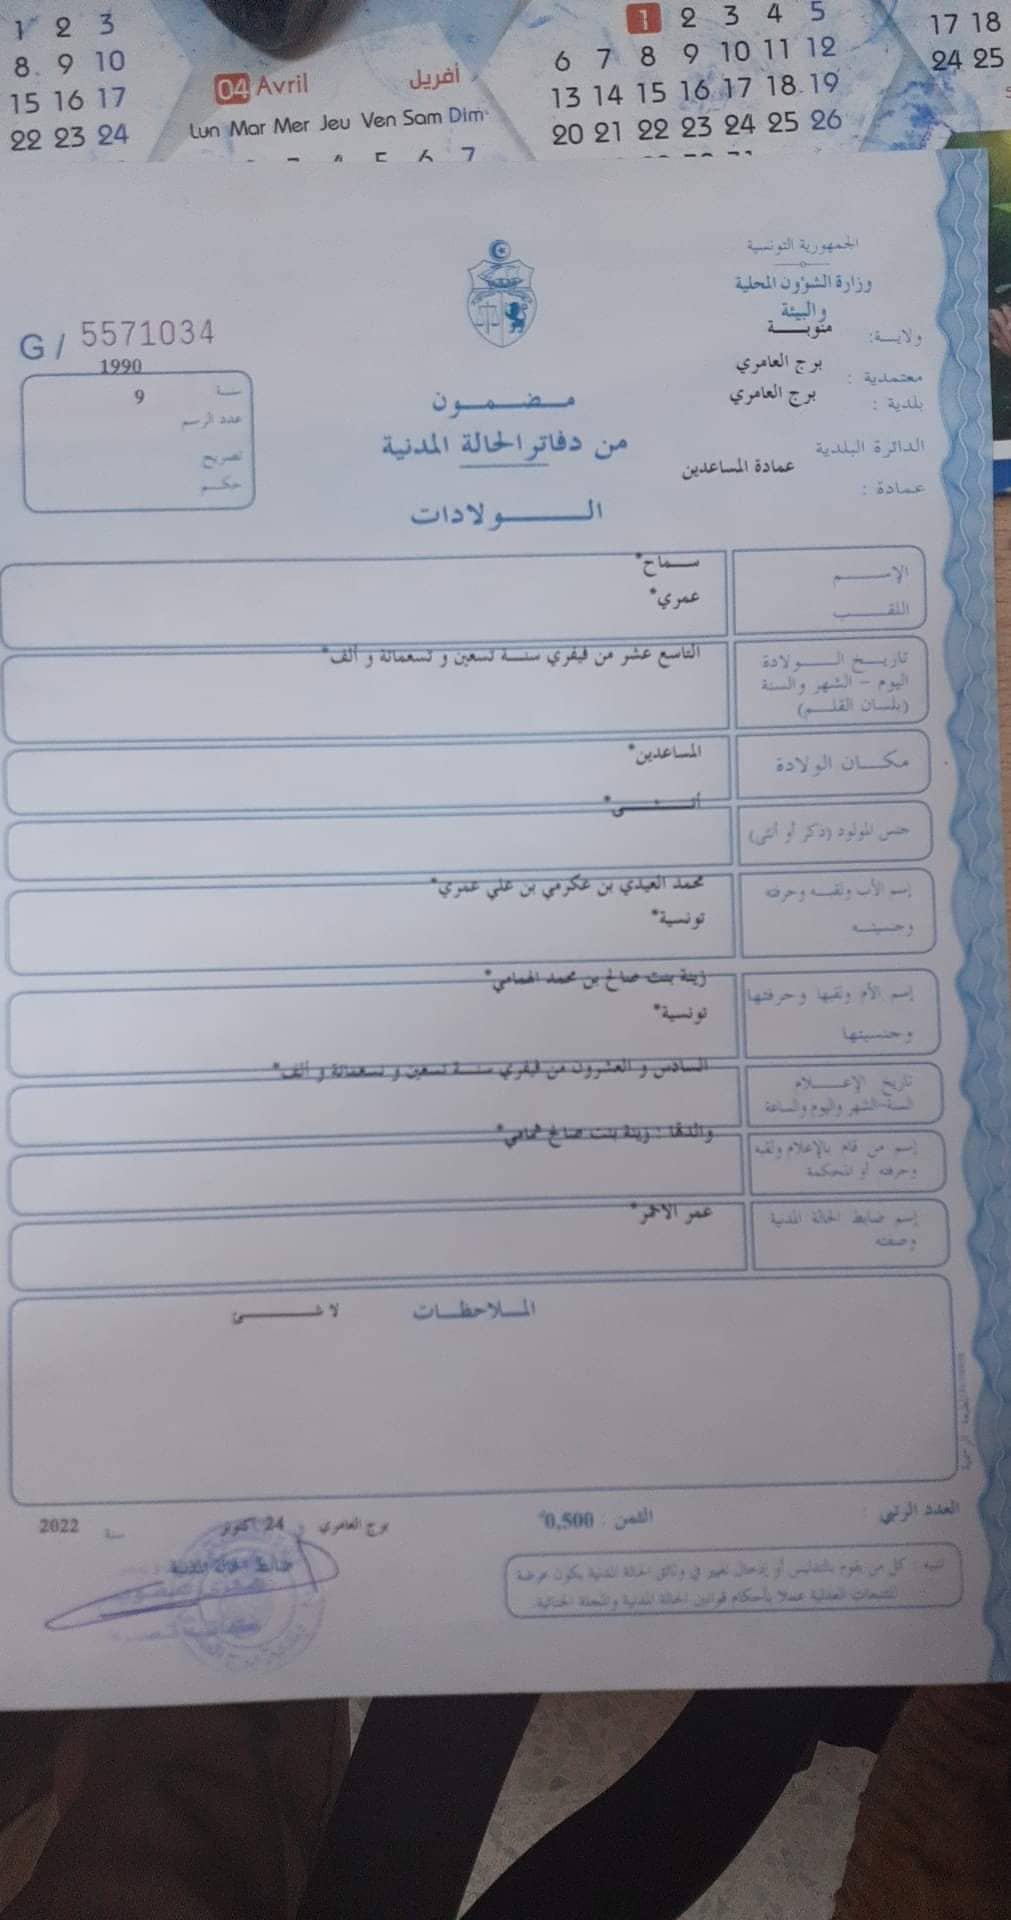 1 2 3
8 9 10
15 16 17
22 23 24
04 Avril أفريل
Lun Mar Mer Jeu Ven Sam Dim
1 2 3 4 5
6 7 8 9 10 11 12
13 14 15 16 17 18 19
20 21 22 23 24 25 26
17 18
24 25
الجمهورية التونسية
وزارة الشؤون المحلية
والبيئة
ولايـة: منوبـــة
معتمدية : برج العامري
بلدية : برج العامري
الدائرة البلدية
عمادة : عمادة المساعدين
G / 5571034
سنة 1990
عدد الرسم 9
تصريح
حكم
مـضـمـون
من دفاتر الحالة المدنية
الـولادات
الإسـم سـمـاح*
اللقـب عمري*
تاريـخ الـولادة التاسع عشر من فيفري سنـة تسعين و تسعمائة و ألف*
اليوم - الشهر والسنة
(بلسان القلـم)
مكـان الولادة المساعدين*
جنس المولود (ذكر أو أنثى) أنـثـى*
إسم الأب ولقبـه وحرفته محمد العيدي بن عكرمي بن علي عمري*
وجنسيتـه تونسية*
إسم الأم ولقبها وحرفتها زينة بنت صالح بن محمد الهمامي*
وجنسيتها تونسية*
تاريخ الإعـلام السادس و العشرون من فيفري سنـة تسعين و تسعمائة و ألف*
السنة-الشهر واليوم والساعة
إسم من قام بالإعلام ولقبه والدتها : زينة بنت صالح همامي*
وحرفته أو المحكمة
إسم ضابط الحالة المدنية عمر الاحمر*
وصفته
المـلاحظـات لا شـــئ
العدد الرتبي :
الثمن : 0,500
برج العامري 24 أكتوبر سنة 2022
ضابط الحالة المدنية
تنبيه : كل من يقوم بالتدليس أو إدخال تغيير في وثائق الحالة المدنية يكون عرضة
للتتبعات العدلية عملا بأحكام قوانين الحالة المدنية والمجلة الجنائية.